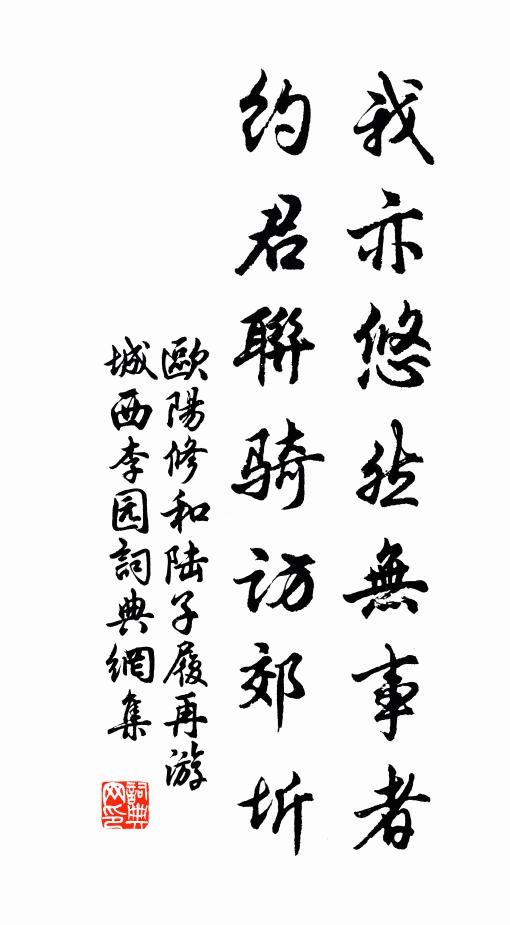 我亦悠然無事者
約君聯騎訪郊圻
歐陽修和陸子履再游
城西李园詞典網集
詞典网印